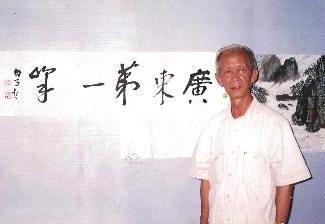 廣東第一峯